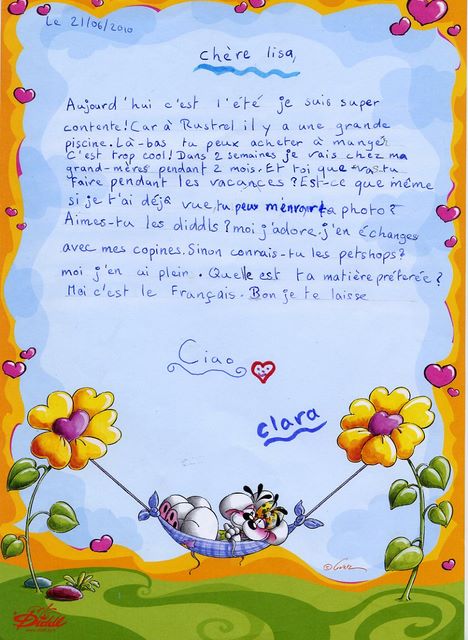 Le 21/06/2010
chère lisa,
Aujourd'hui c'est l'été je suis super
contente! Car à Rustrel il y a une grande
piscine. Là-bas tu peux acheter à manger
C'est trop cool! Dans 2 semaines je vais chez ma
grand-mères pendant 2 mois. Et toi que vas-tu
faire pendant les vacances ? Est-ce que même
si je t'ai déjà vue, tu peux m'envoyer ta photo ?
Aimes-tu les diddls ? moi j'adore. j'en échanges
avec mes copines. Sinon connais-tu les petshops ?
moi j'en ai plein. Quelle est ta matière préferée ?
Moi c'est le Français. Bon je te laisse
Ciao
clara
Diddl